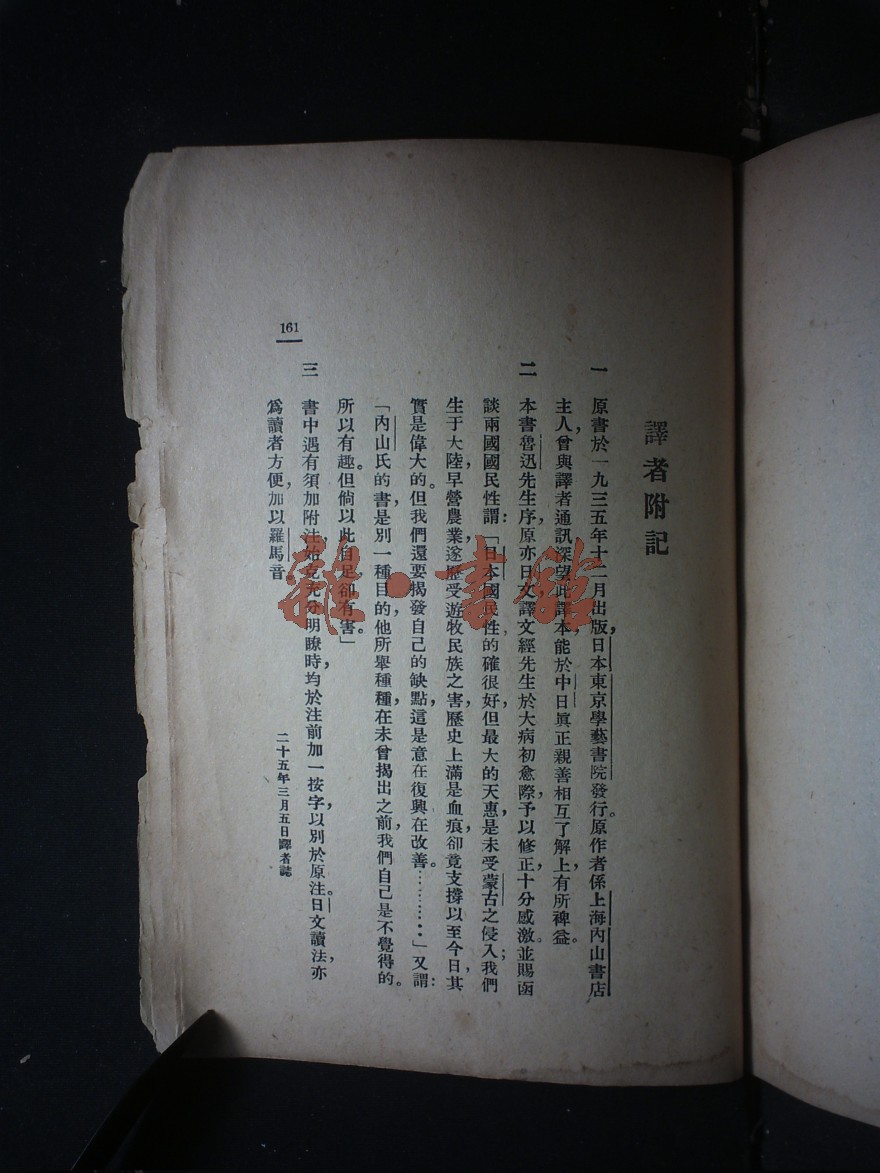 譯者附記
一　原書於一九三五年十二月出版，日本東京學藝書院發行。原作者係上海內山書店
主人，曾與譯者通訊，深望此譯本能於中日眞正親善相互了解上有所裨益。
二　本書魯迅先生序，原亦日文，譯文經先生於大病初愈際，予以修正，十分感激。並賜函
談兩國國民性謂：「日本國民性，的確很好，但最大的天惠，是未受蒙古之侵入；我們
生于大陸，早營農業，遂歷受遊牧民族之害，歷史上滿是血痕，卻竟支撐以至今日，其
實是偉大的。但我們還要揭發自己的缺點，這是意在復興，在改善。⋯⋯⋯」又謂：
「內山氏的書，是別一種目的，他所舉種種，在未曾揭出之前，我們自己是不覺得的。
所以有趣。但倘以此自足，卻有害。」
三　書中遇有須加附注，始克充分明瞭時，均於注前加一按字，以別於原注。日文讀法，亦
爲讀者方便，加以羅馬音
二十五年三月五日譯者誌
161
雜·書館